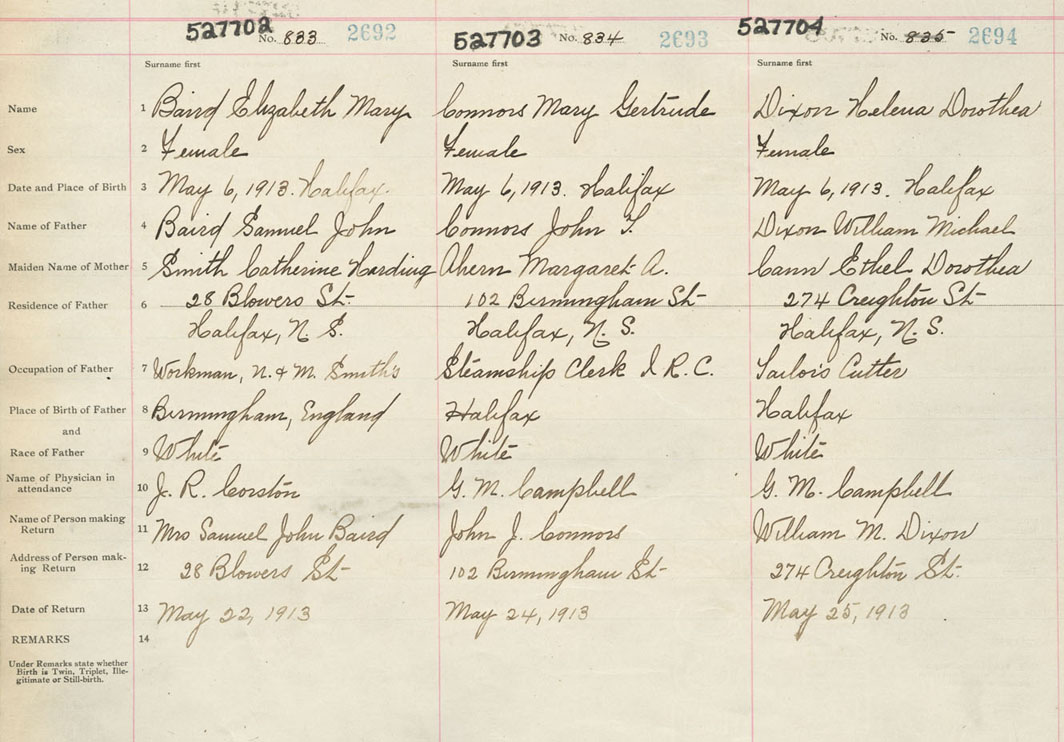 527702 No. 833 2692
527703 No. 834 2693
527704 No. 835 2694
Surname first Surname first Surname first
Name 1 Baird Elizabeth Mary Connors Mary Gertrude Dixon Helena Dorothea
Sex 2 Female Female Female
Date and Place of Birth 3 May 6, 1913. Halifax. May 6, 1913. Halifax May 6, 1913. Halifax
Name of Father 4 Baird Samuel John Connors John T. Dixon William Michael
Maiden Name of Mother 5 Smith Catherine Harding Ahern Margaret A. Cann Ethel Dorothea
Residence of Father 6 28 Blowers St 102 Birmingham St 274 Creighton St
Halifax, N. S. Halifax, N. S. Halifax, N. S.
Occupation of Father 7 Workman, N. & M. Smith's Steamship Clerk I. R. C. Tailors Cutter
Place of Birth of Father 8 Birmingham, England Halifax Halifax
and
Race of Father 9 White White White
Name of Physician in
attendance 10 J. R. Corston G. M. Campbell G. M. Campbell
Name of Person making
Return 11 Mrs Samuel John Baird John J. Connors William M. Dixon
Address of Person mak-
ing Return 12 28 Blowers St 102 Birmingham St 274 Creighton St.
Date of Return 13 May 22, 1913 May 24, 1913 May 25, 1913
REMARKS 14
Under Remarks state whether
Birth is Twin, Triplet, Ille-
gitimate or Still-birth.